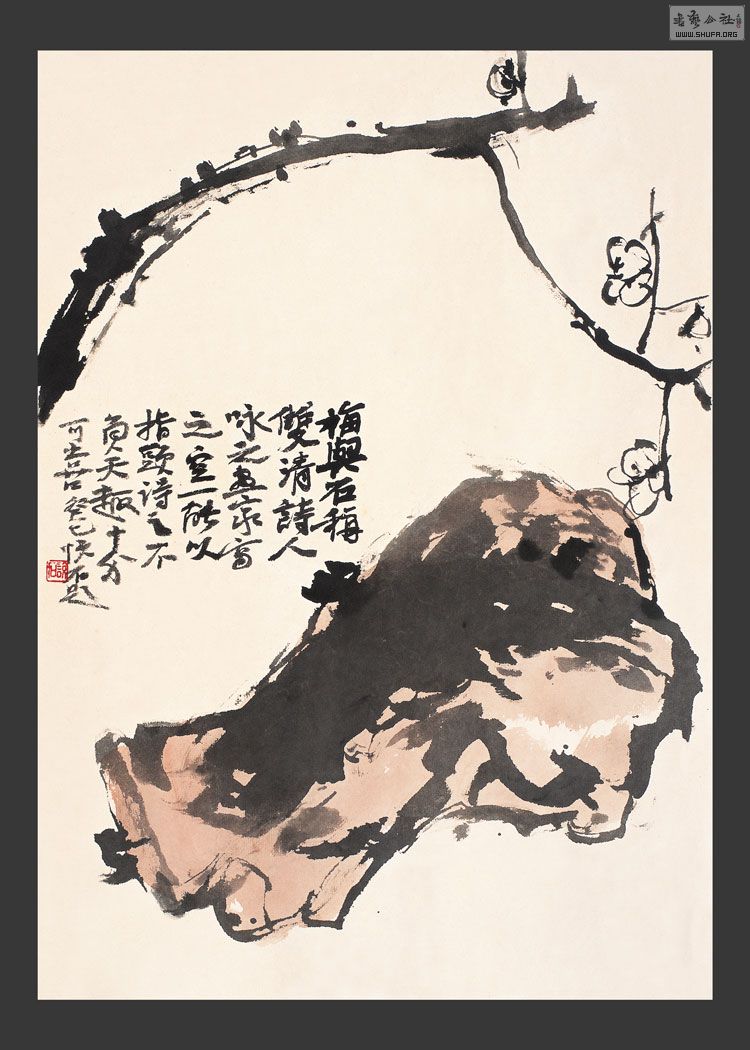 梅與石稱
雙清詩人
咏之畫家寫
之宜一能以
指頭詩之不
負天趣十分
可喜癸巳 題
書藝公社
WWW.SHUFA.ORG